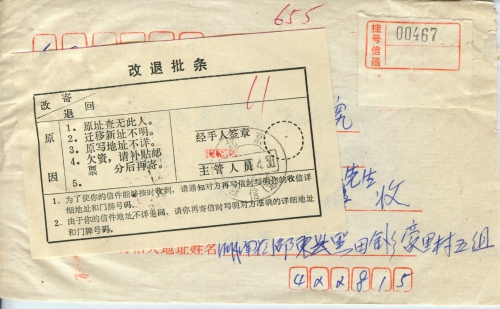 655
挂号信函
00467
改退批条
改寄
退回
原因
1. 原址查无此人。
2. 迁移新址不明。
3. 原写地址不详。
4. 欠资，请补贴邮
分后再寄。
5.
经手人签章
主管人员
4.30
1. 为了使你的信件能够按时收到，请通知对方再写信时写明你的收信详
细地址和门牌号码。
2. 由于你的信件地址不详退回，请你再寄信时写明对方准确的详细地址
和门牌号码。
先生
收
地址姓名
湖南省邵东县黑田铺
里村五组
422815